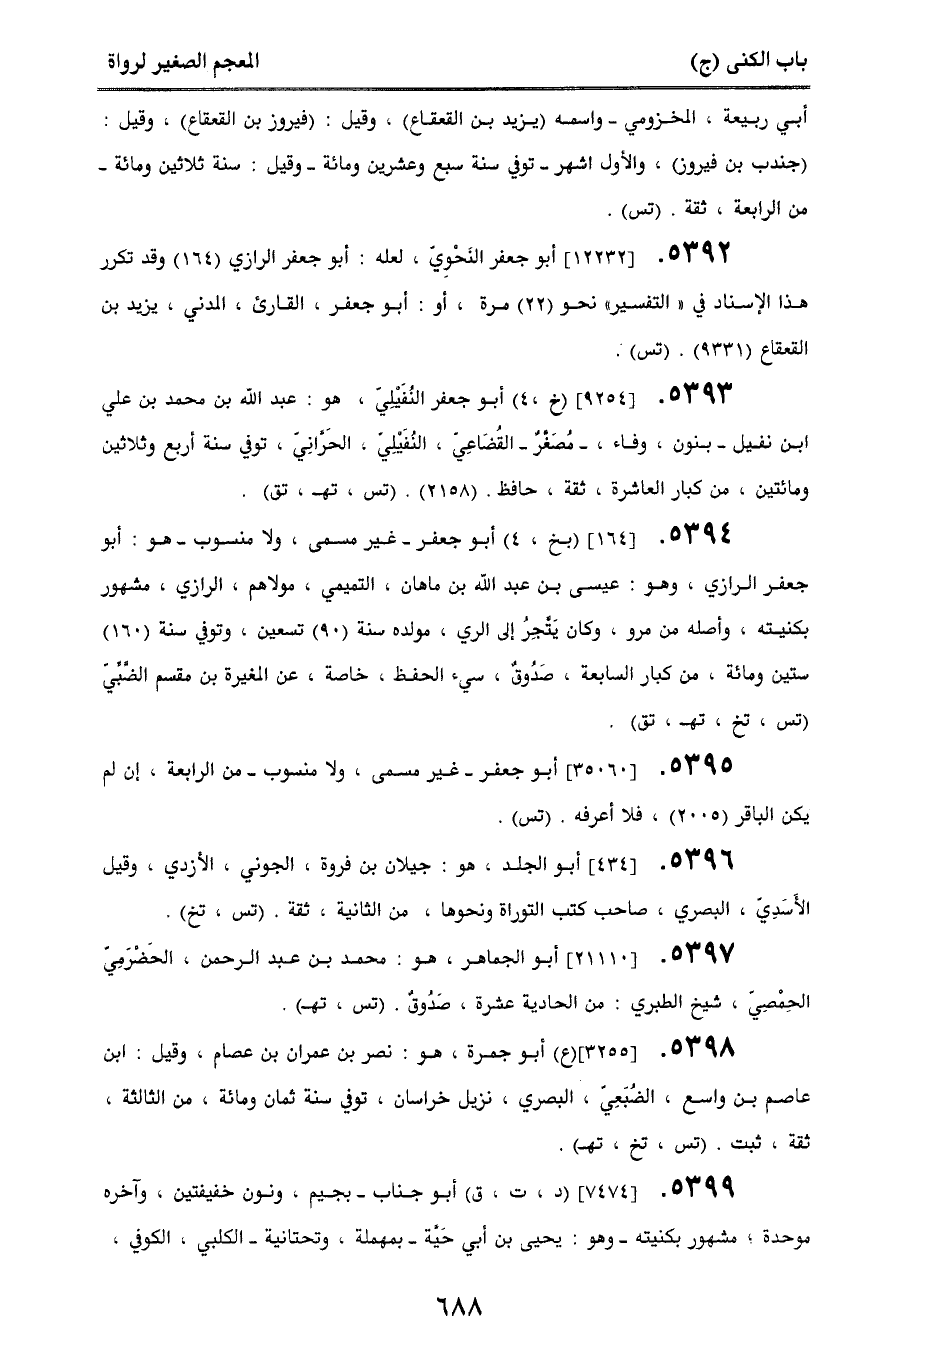 باب الكنى (ج)
المعجم الصغير لرواة
أبي ربيعة ، المخزومي ـ واسمه (يزيد بن القعقاع) ، وقيل : (فيروز بن القعقاع) ، وقيل :
(جندب بن فيروز) ، والأول اشهر ـ توفي سنة سبع وعشرين ومائة ـ وقيل : سنة ثلاثين ومائة ـ
من الرابعة ، ثقة . (تس) .
٥٣٩٢. [١٢٢٣٢] أبو جعفر النَحْوِيّ ، لعله : أبو جعفر الرازي (١٦٤) وقد تكرر
هذا الإسناد في « التفسير» نحو (٢٢) مرة ، أو : أبو جعفر ، القارئ ، المدني ، يزيد بن
القعقاع (٩٣٣١) . (تس) .
٥٣٩٣. [٩٢٥٤] (خ ،٤) أبو جعفر النُفَيْلِيّ ، هو : عبد الله بن محمد بن علي
ابن نفيل ـ بنون ، وفاء ، ـ مُصَغَّرٌ ـ القُضَاعِيّ ، النُفَيْلِيّ ، الحَرَّانِيّ ، توفي سنة أربع وثلاثين
ومائتين ، من كبار العاشرة ، ثقة ، حافظ . (٢١٥٨) . (تس ، تهـ ، تق) .
٥٣٩٤. [١٦٤] (بخ ، ٤) أبو جعفر ـ غير مسمى ، ولا منسوب ـ هو : أبو
جعفر الرازي ، وهو : عيسى بن عبد الله بن ماهان ، التميمي ، مولاهم ، الرازي ، مشهور
بكنيته ، وأصله من مرو ، وكان يَتَّجِرُ إلى الري ، مولده سنة (٩٠) تسعين ، وتوفي سنة (١٦٠)
ستين ومائة ، من كبار السابعة ، صَدُوقٌ ، سيء الحفظ ، خاصة ، عن المغيرة بن مقسم الضَّبِّيّ
(تس ، تخ ، تهـ ، تق) .
٥٣٩٥. [٣٥٠٦٠] أبو جعفر ـ غير مسمى ، ولا منسوب ـ من الرابعة ، إن لم
يكن الباقر (٢٠٠٥) ، فلا أعرفه . (تس) .
٥٣٩٦. [٤٣٤] أبو الجلد ، هو : جيلان بن فروة ، الجوني ، الأزدي ، وقيل
الأَسَدِيّ ، البصري ، صاحب كتب التوراة ونحوها ، من الثانية ، ثقة . (تس ، تخ) .
٥٣٩٧. [٢١١١٠] أبو الجماهر ، هو : محمد بن عبد الرحمن ، الحَضْرَمِيّ
الحِمْصِيّ ، شيخ الطبري : من الحادية عشرة ، صَدُوقٌ . (تس ، تهـ) .
٥٣٩٨. [٣٢٥٥](ع) أبو جمرة ، هو : نصر بن عمران بن عصام ، وقيل : ابن
عاصم بن واسع ، الضُبَعِيّ ، البصري ، نزيل خراسان ، توفي سنة ثمان ومائة ، من الثالثة ،
ثقة ، ثبت . (تس ، تخ ، تهـ) .
٥٣٩٩. [٧٤٧٤] (د ، ت ، ق) أبو جناب ـ بجيم ، ونون خفيفتين ، وآخره
موحدة ؛ مشهور بكنيته ـ وهو : يحيى بن أبي حَيَّة ـ بمهملة ، وتحتانية ـ الكلبي ، الكوفي ،
٦٨٨